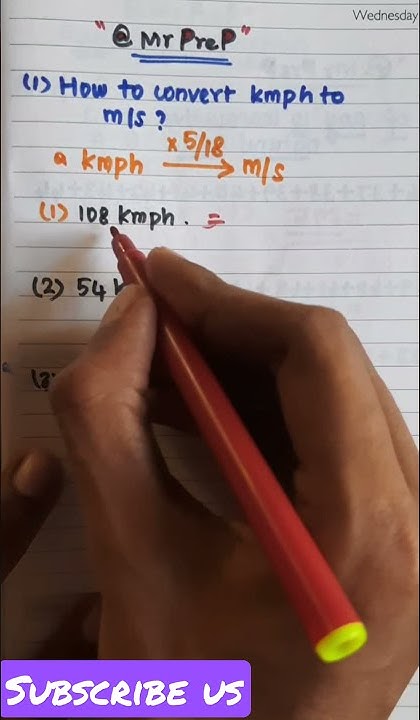 Wednesday
"@ Mr PreP"
(1) How to convert kmph to
m/s?
× 5/18
a kmph → m/s
(1) 108 kmph. =
(2) 54 k
SUBSCRIBE US